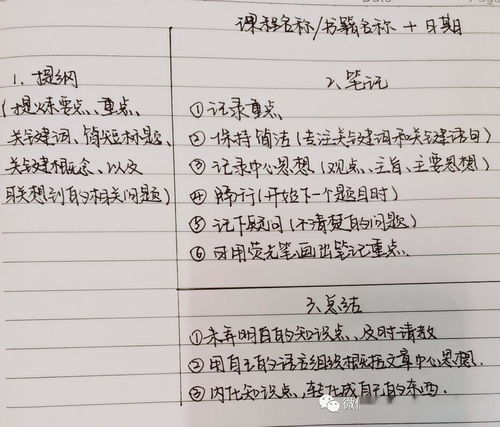 课程名称/书籍名称 + 日期
1. 提纲
(提炼要点、重点、
关键词、简短标题、
关键概念、以及
联想到的相关问题)
2. 笔记
①记录重点
②保持简洁(去注关键词和关键语句)
③记录中心思想(观点、主旨、主要思想)
④隔行(开始下一个题目时)
⑤记下疑问(不清楚的问题)
⑥可用荧光笔画出笔记重点.
3. 总结
①未弄明白的知识点、及时请教
②用自己的语言组织概括文章中心思想.
③内化知识点,转化成自己的东西.
微信